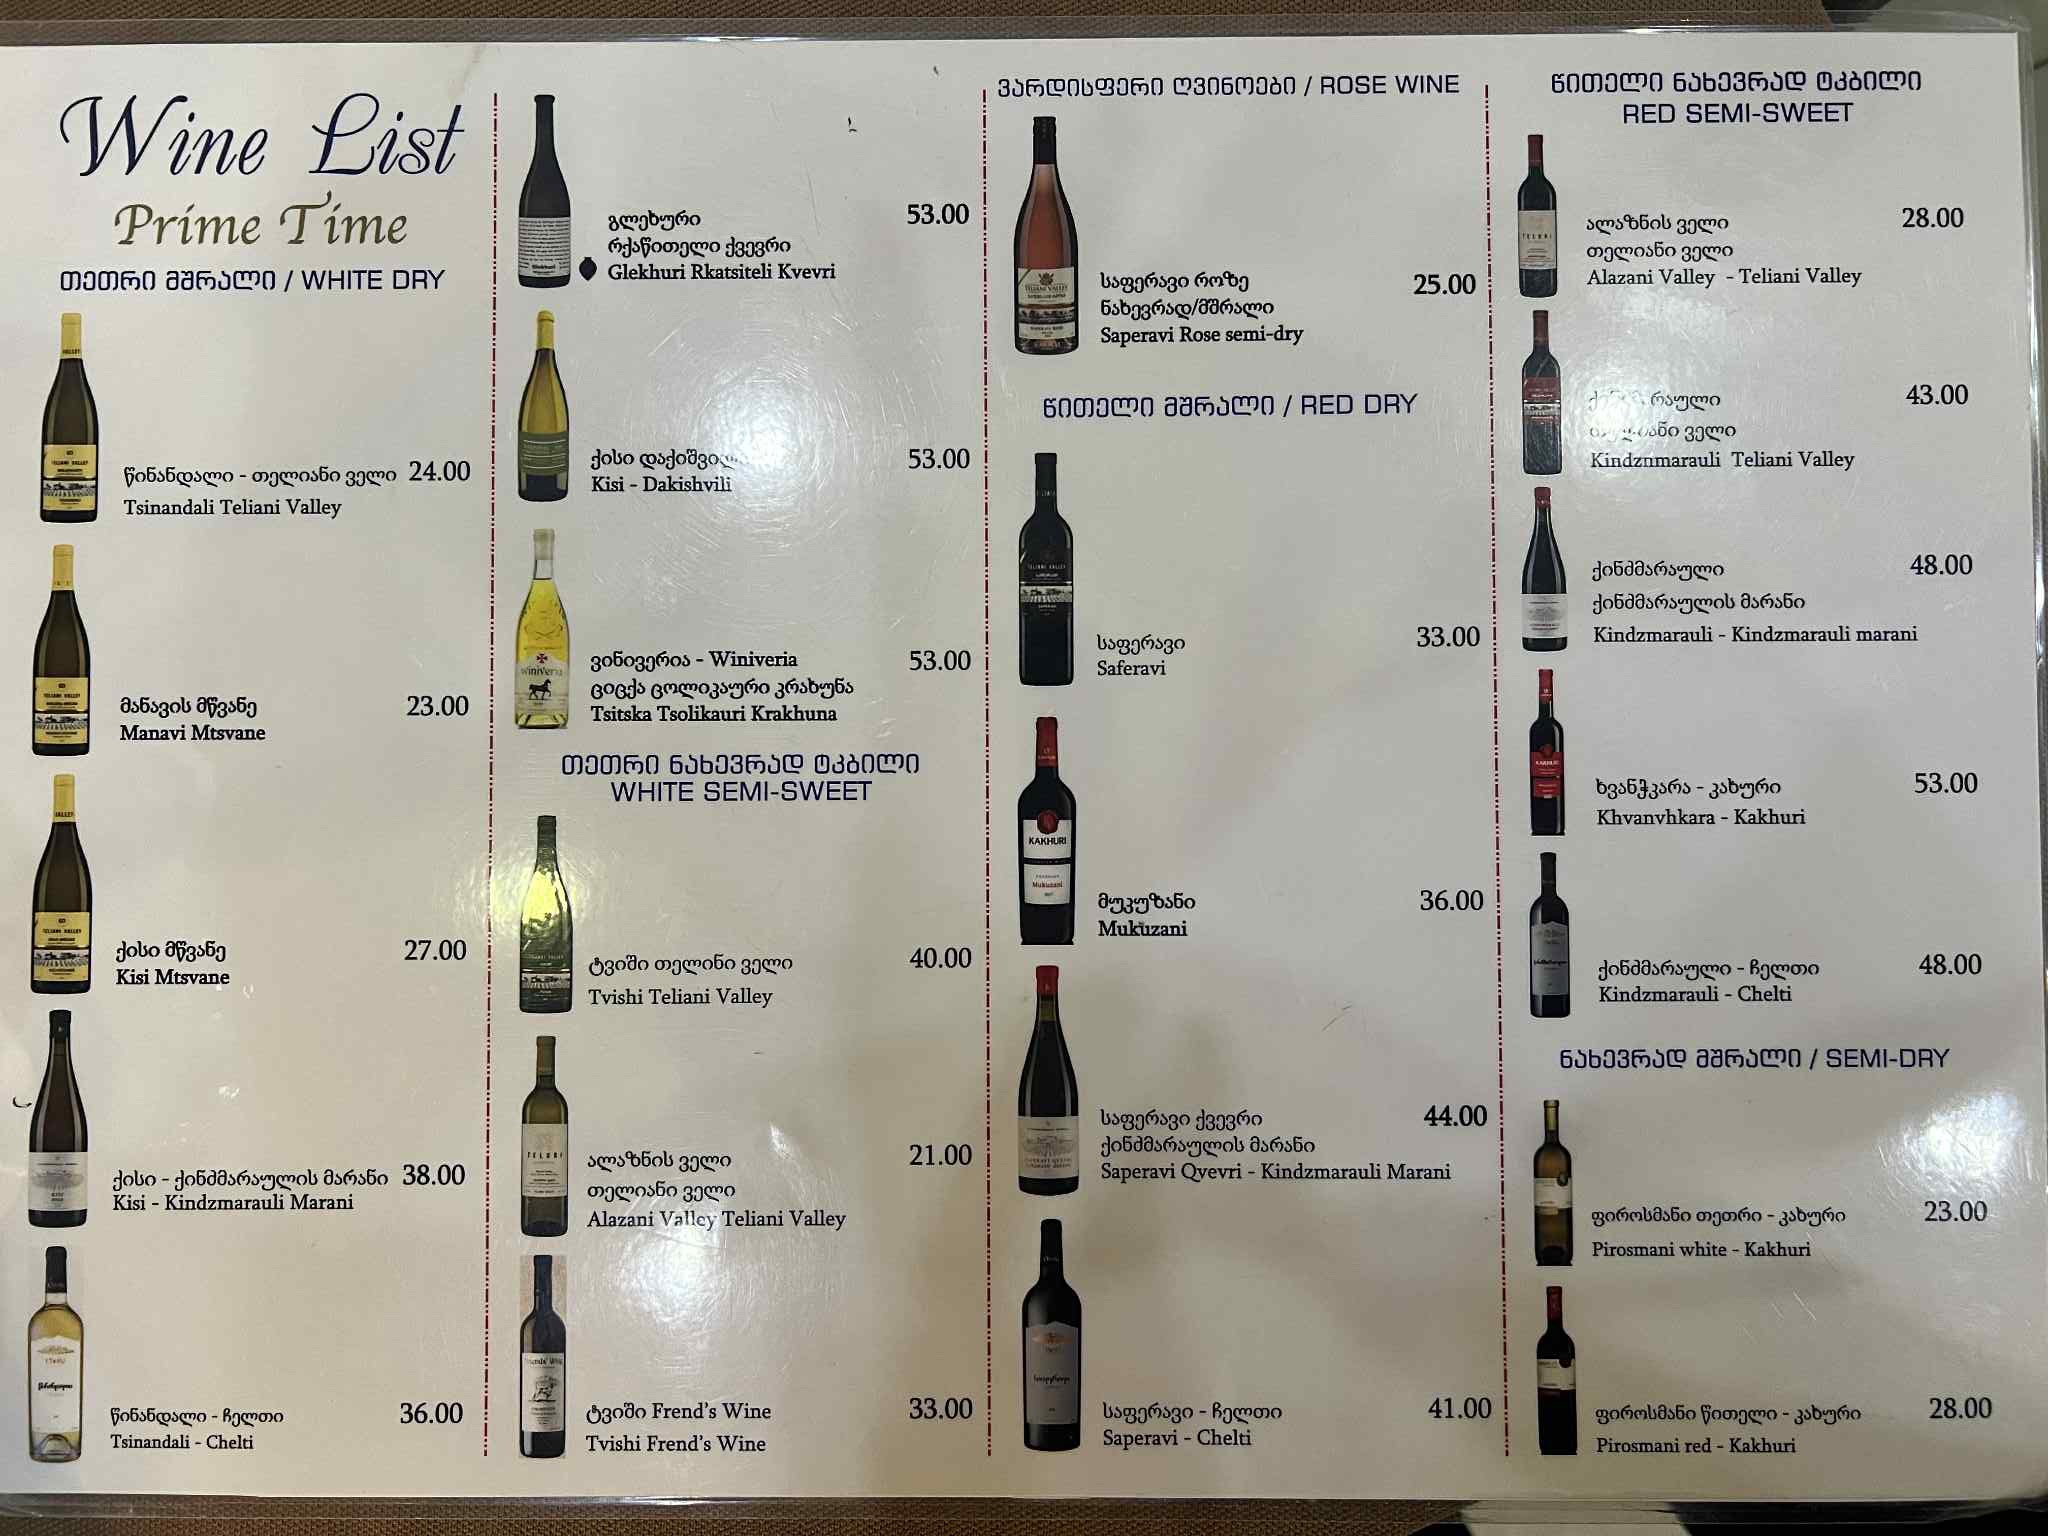 Wine List
Prime Time
თეთრი მშრალი / WHITE DRY
წინანდალი - თელიანი ველი 24.00
Tsinandali Teliani Valley
მანავის მწვანე 23.00
Manavi Mtsvane
ქისი მწვანე 27.00
Kisi Mtsvane
ქისი - ქინძმარაულის მარანი 38.00
Kisi - Kindzmarauli Marani
წინანდალი - ჩელთი 36.00
Tsinandali - Chelti
გლეხური 53.00
რქაწითელი ქვევრი
Glekhuri Rkatsiteli Kvevri
ქისი 53.00
Kisi - Dakishvili
ვინივერია - Winiveria 53.00
ციცქა ცოლიკაური კრახუნა
Tsitska Tsolikauri Krakhuna
თეთრი ნახევრად ტკბილი
WHITE SEMI-SWEET
ტვიში თელინი ველი 40.00
Tvishi Teliani Valley
ალაზნის ველი 21.00
თელიანი ველი
Alazani Valley Teliani Valley
ტვიში Frend's Wine 33.00
Tvishi Frend's Wine
ვარდისფერი ღვინოები / ROSE WINE
საფერავი როზე 25.00
ნახევრად/მშრალი
Saperavi Rose semi-dry
წითელი მშრალი / RED DRY
საფერავი 33.00
Saferavi
KAKHURI
Mukuzani
მუკუზანი 36.00
Mukuzani
საფერავი ქვევრი 44.00
ქინძმარაულის მარანი
Saperavi Qvevri - Kindzmarauli Marani
საფერავი - ჩელთი 41.00
Saperavi - Chelti
წითელი ნახევრად ტკბილი
RED SEMI-SWEET
ალაზნის ველი 28.00
თელიანი ველი
Alazani Valley - Teliani Valley
43.00
ველი
Kindznmarauli Teliani Valley
ქინძმარაული 48.00
ქინძმარაულის მარანი
Kindzmarauli - Kindzmarauli marani
ხვანჭკარა - კახური 53.00
Khvanvhkara - Kakhuri
ქინძმარაული - ჩელთი 48.00
Kindzmarauli - Chelti
ნახევრად მშრალი / SEMI-DRY
ფიროსმანი თეთრი - კახური 23.00
Pirosmani white - Kakhuri
ფიროსმანი წითელი - კახური 28.00
Pirosmani red - Kakhuri